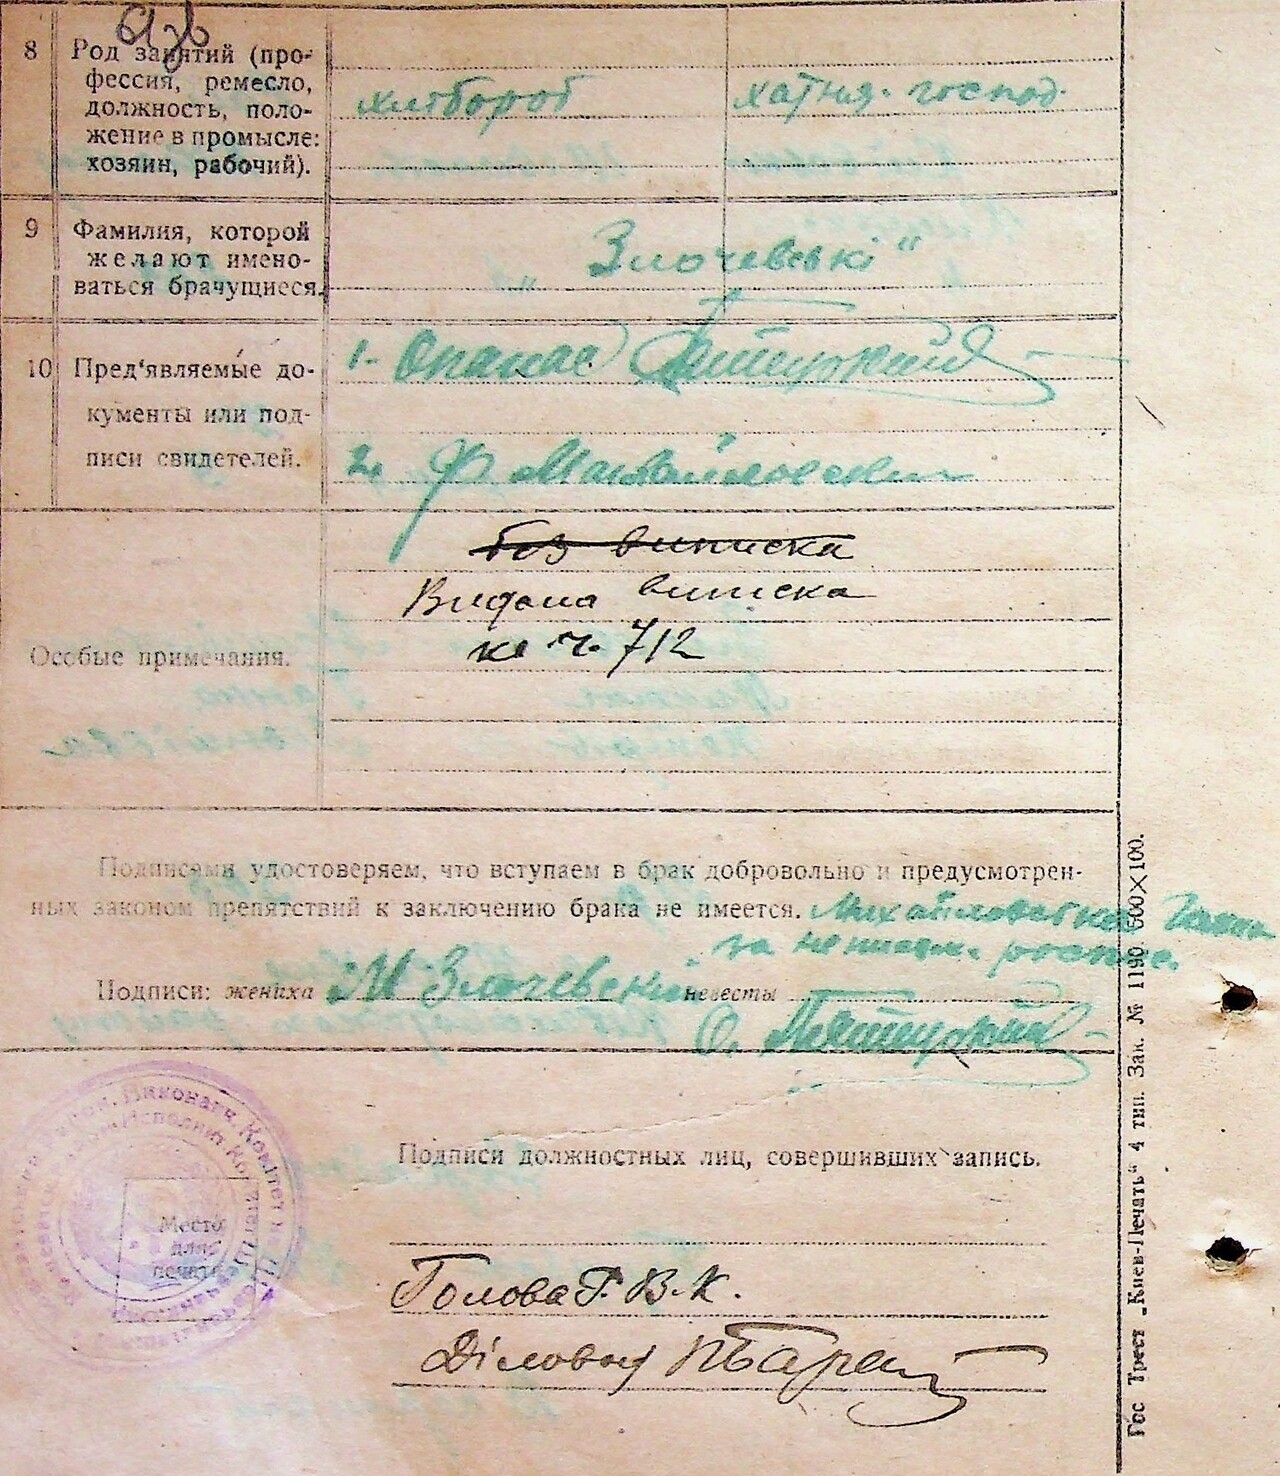 8 Род занятий (про-
фессия, ремесло,
должность, поло-
жение в промысле:
хозяин, рабочий).
хлібороб хатня. господ.
9 Фамилия, которой
желают имено-
ваться брачущиеся.
„Злочевські“
10 Пред'являемые до-
кументы или под-
писи свидетелей.
1. Опанас
2. Ф. Михайловський
Особые примечания.
без виписка
Видана виписка
за ч. 712
Подписями удостоверяем, что вступаем в брак добровольно и предусмотрен-
ных законом препятствий к заключению брака не имеется. Михайловська Ганна
за
Подписи: жениха М Злочевский невесты
О.
Виконавч. Комітет
Исполнит Ком
Место
для
печати
Подписи должностных лиц, совершивших запись.
Голова Р. В. К.
Діловод
Гос Трест „Киев-Печать“ 4 тип. Зак. № 1190. 600×100.